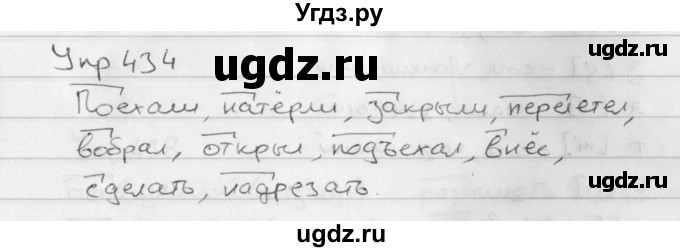 Угдз.ру
Упр 434
ugdz.ru
ugdz.ru
Поехали, натёрли, закрыли, перелетел,
вобрал, открыл, подъехал, внёс,
сделать, надрезать.
ugdz.ru
ugdz.ru
ugdz.ru